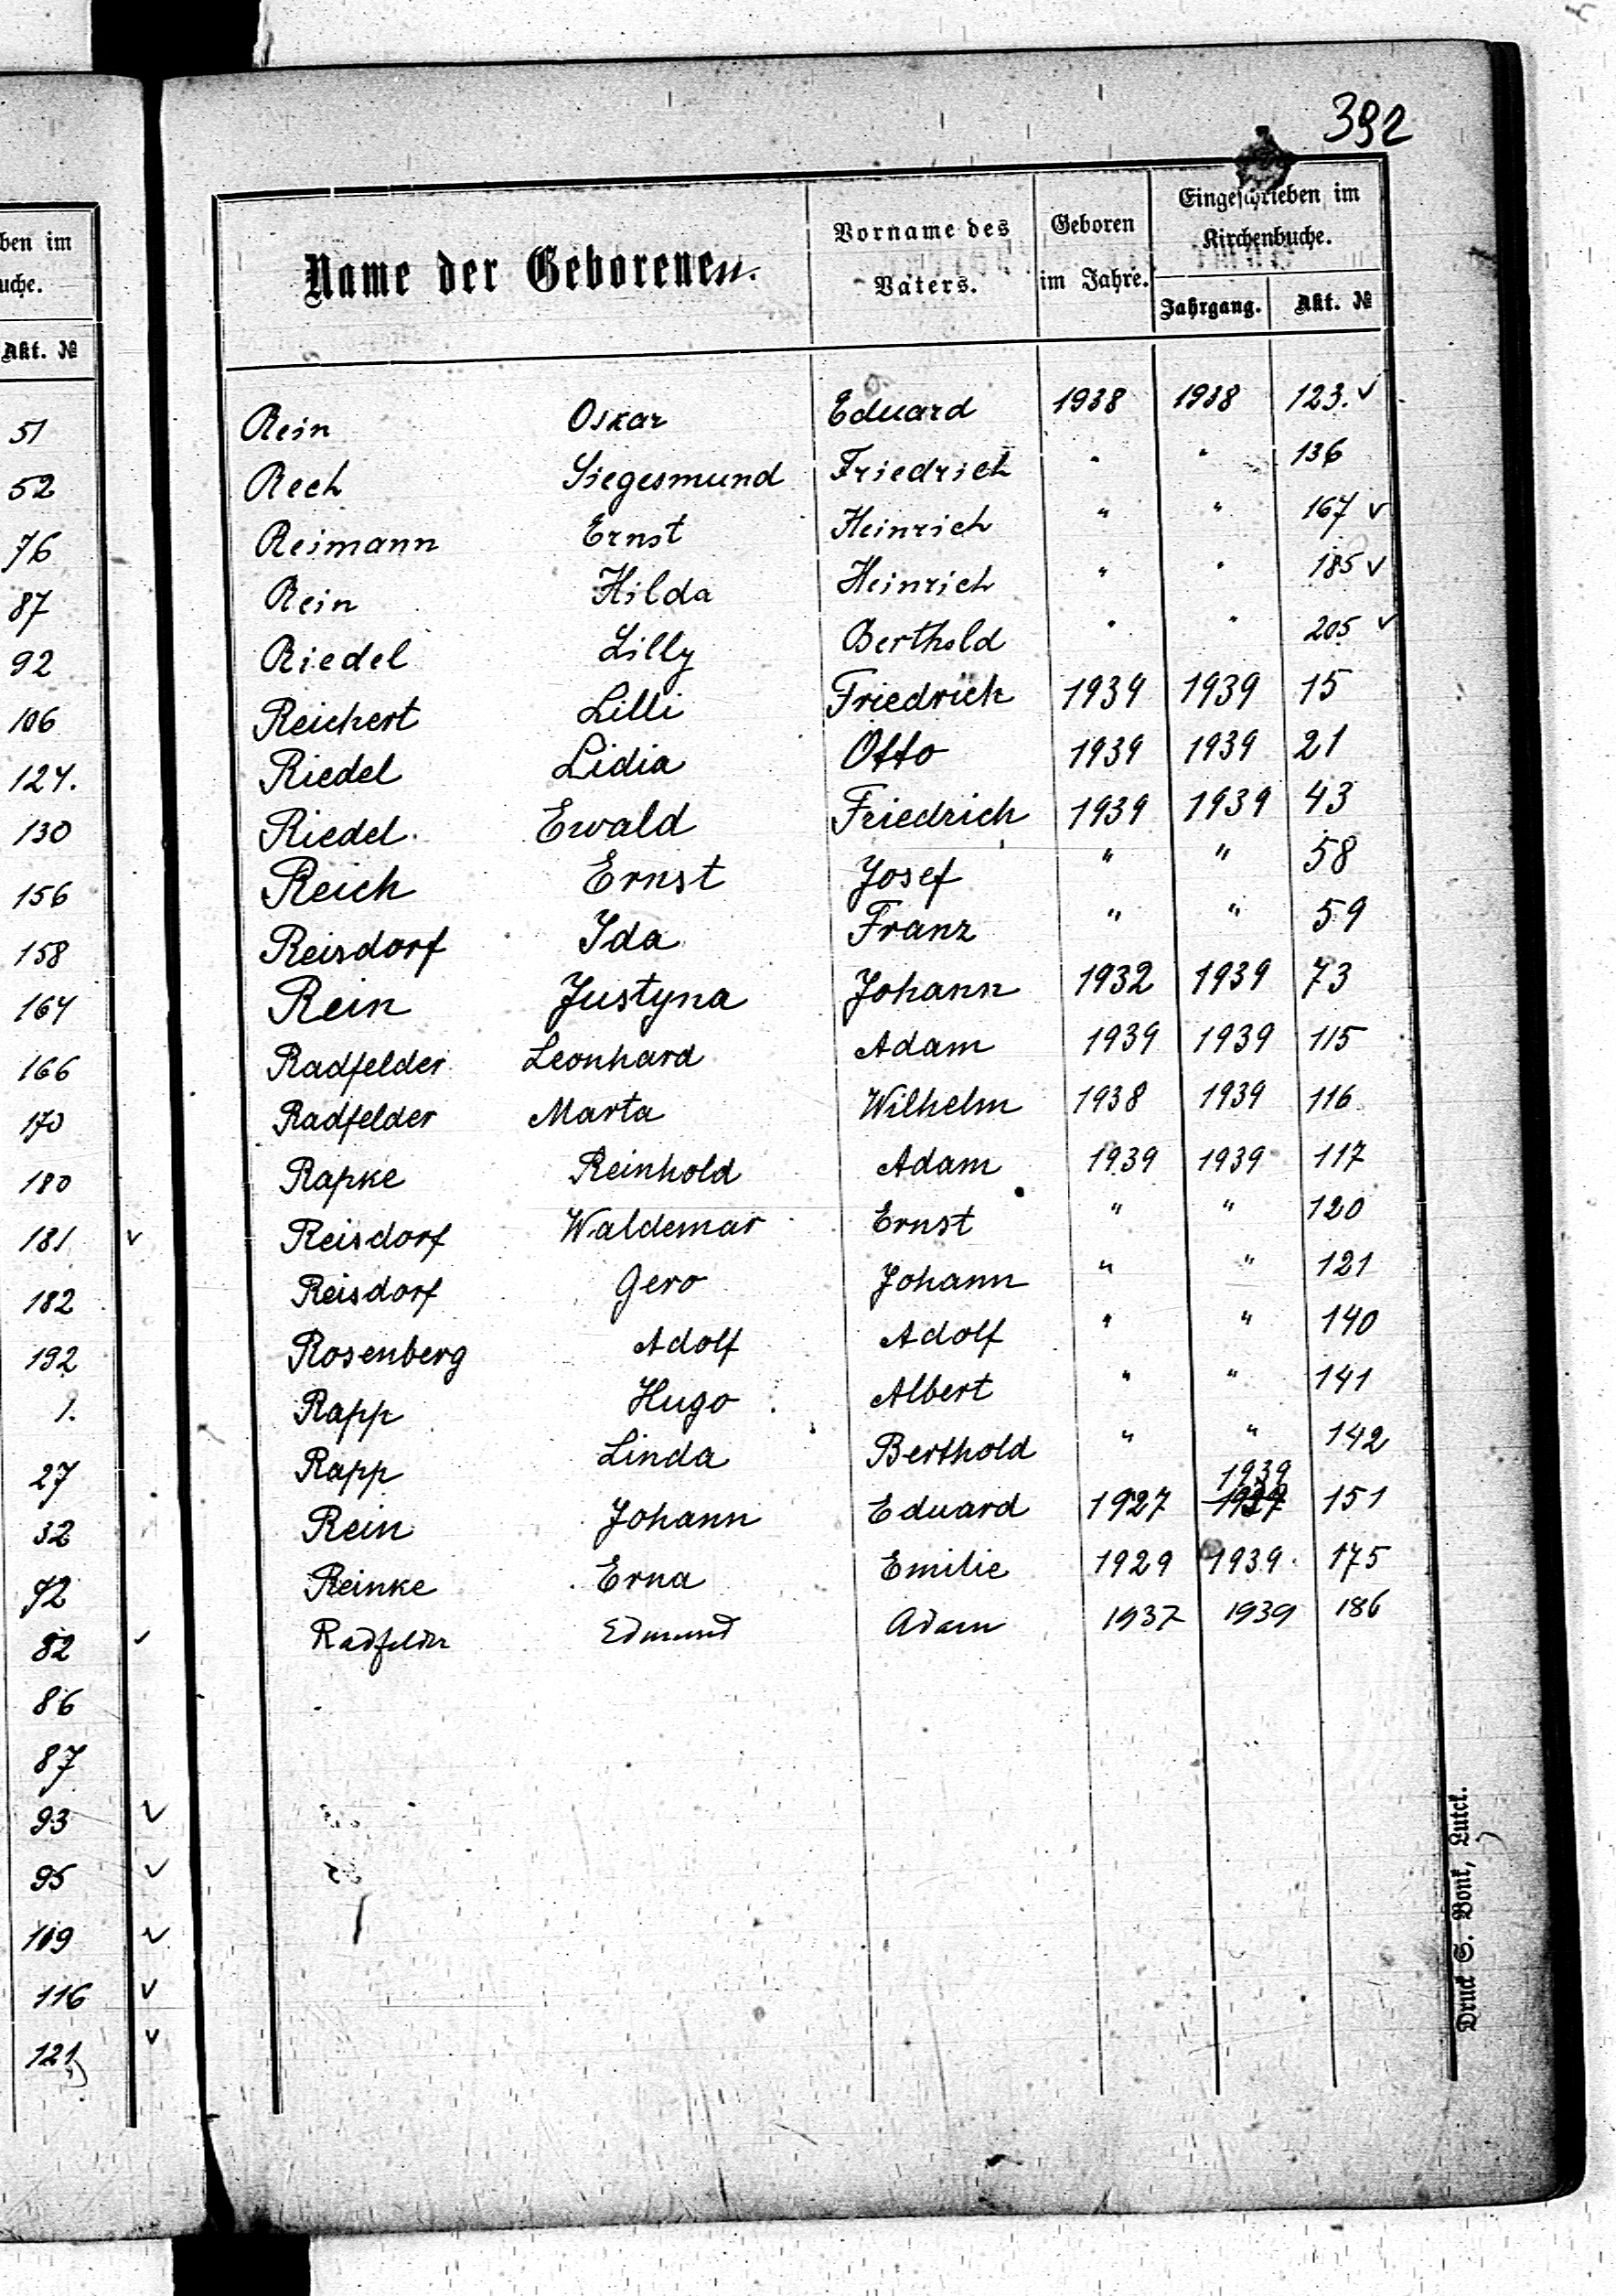 392
ben im
uche.
Akt. №
51
52
76
87
92
106
124.
130
156
158
164
166
170
180
181 v
182
192
1.
27
32
72
82 v
86
87
93 v
95 v
109 v
116 v
121 v
Name der Geborenen. Vorname des Vaters. Geboren im Jahre. Eingeschrieben im Kirchenbuche.
Jahrgang. Akt. №
Rein Oskar Eduard 1938 1938 123. v
Rech Siegesmund Friedrich " " 136
Reimann Ernst Heinrich " " 167 v
Rein Hilda Heinrich " " 185 v
Riedel Lilly Berthold " " 205 v
Reichert Lilli Friedrich 1939 1939 15
Riedel Lidia Otto 1939 1939 21
Riedel Ewald Friedrich 1939 1939 43
Reich Ernst Josef " " 58
Reisdorf Ida Franz " " 59
Rein Justyna Johann 1932 1939 73
Radfelder Leonhard Adam 1939 1939 115
Radfelder Marta Wilhelm 1938 1939 116
Rapke Reinhold Adam 1939 1939 117
Reisdorf Waldemar Ernst " " 120
Reisdorf Gero Johann " " 121
Rosenberg Adolf Adolf " " 140
Rapp Hugo Albert " " 141
Rapp Linda Berthold " " 142
1939
Rein Johann Eduard 1927 1927 151
Reinke Erna Emilie 1929 1939 175
Radfelder Edmund Adam 1937 1939 186
Druck S. Bonk, Lutck.